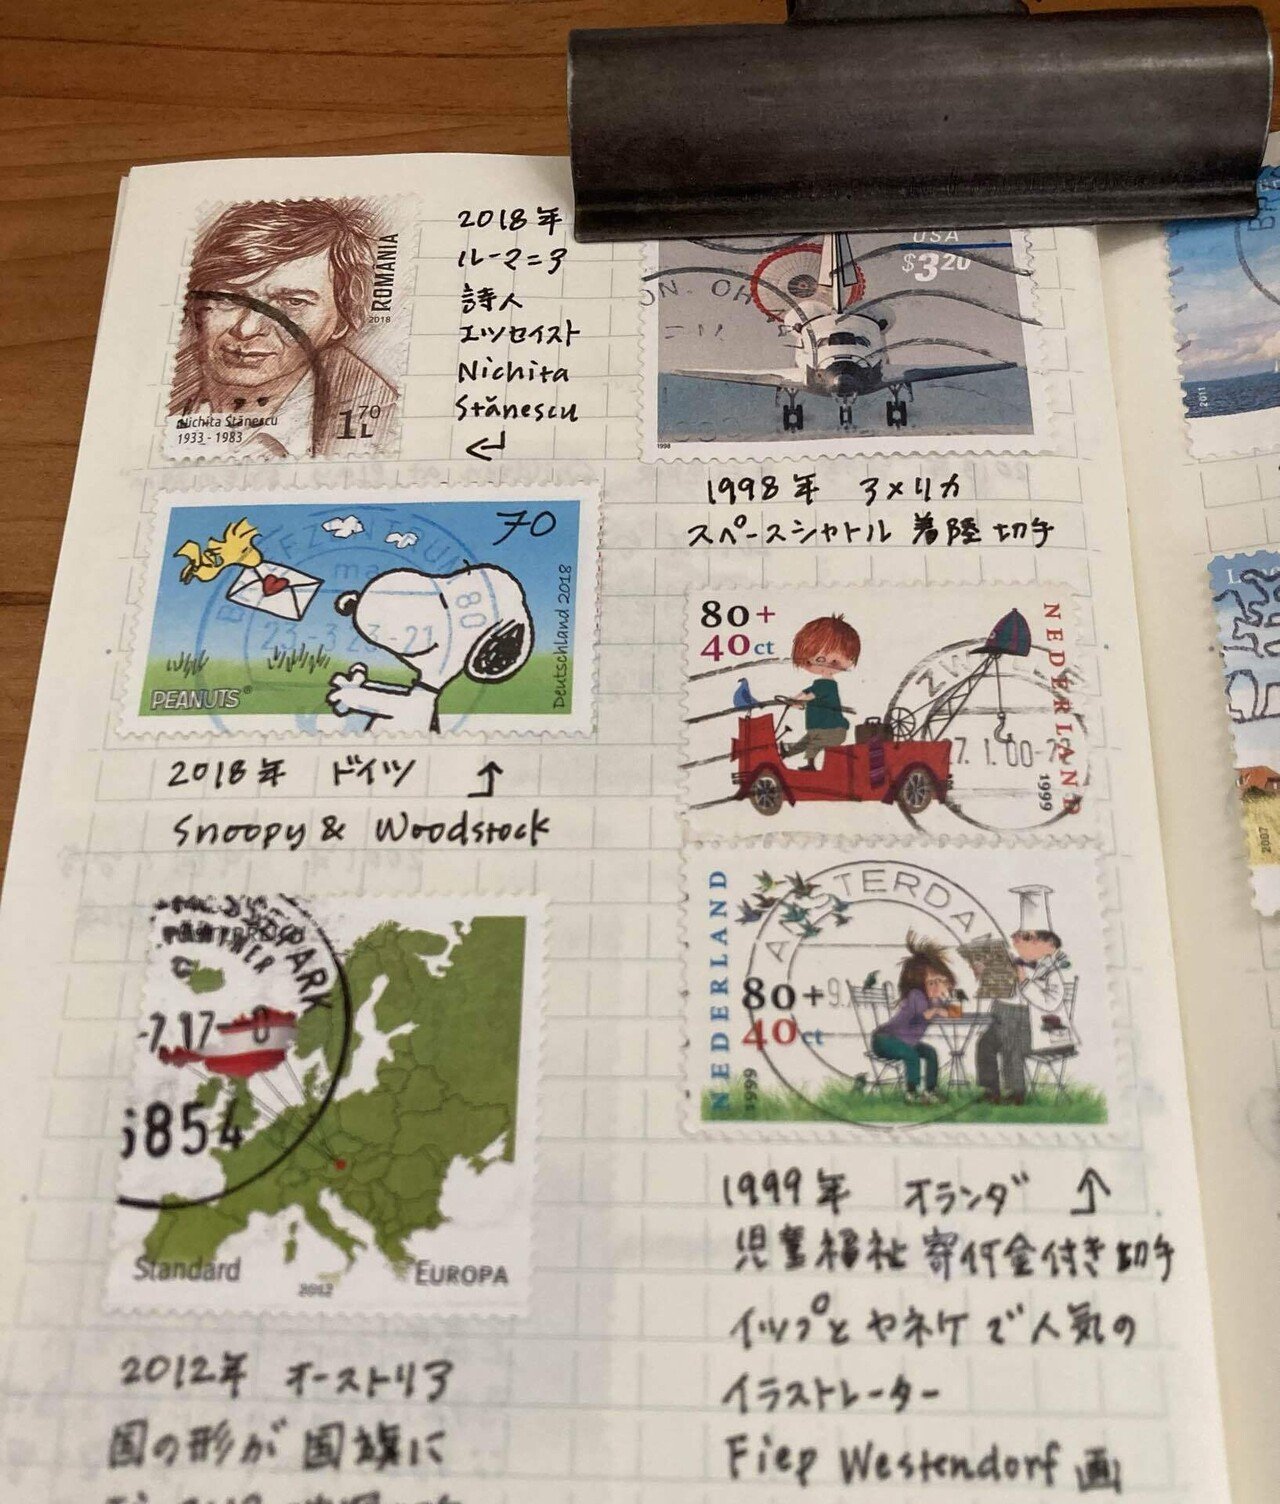 ROMANIA
2018
Nichita Stănescu
1933 - 1983
1 70 L
2018年
ルーマニア
詩人
エッセイスト
Nichita
Stănescu
USA
$3 20
ON. OH
1998
1998年 アメリカ
スペースシャトル 着陸切手
70
Deutschland 2018
PEANUTS
BRIEFZENTRUM 80
ma
23.-3 23.-21
2018年 ドイツ ↑
Snoopy & Woodstock
80+
40ct
NEDERLAND
1999
ZW
7. 1.00-
NEDERLAND
80+
40ct
1999
AMSTERDAM
1999年 オランダ ↑
児童福祉 寄付金付き切手
イップとヤネケで人気の
イラストレーター
Fiep Westendorf 画
PARTNER
ARK
-7.17- 0
6854
Standard
2012
EUROPA
2012年 オーストリア
国の形が国旗に
2011
2007